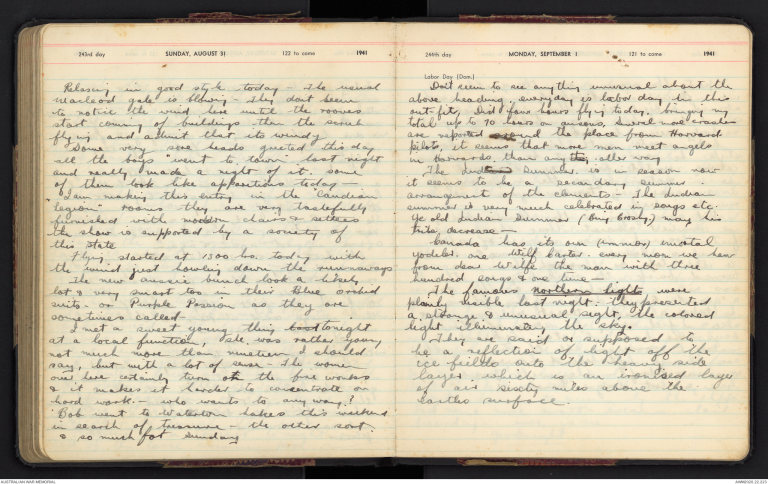 243rd day SUNDAY, AUGUST 31 122 to come 1941
Relaxing in good style today – The usual
Macleod gale is blowing They dont seem
to notice the wind here until the rooves
start coming off buildings then they scrub
flying and admit that its windy
Some very sore heads greeted this day
all the boys "went to town" last night
and really made a night of it. some
of them look like apparitions today –
I am making this entry in the "Canadian
Legion" rooms they are very tastefully
furnished with modern chairs & settees
the show is supported by a society of
this state
Flying started at 1300 hrs. today with
the wind just howling down the runnaways
The new aussie bunch look a likely
lot & very smart too in their Blue orchid
suits. or Purple Passion as they are
sometimes called –
I met a sweet young thing tonight
at a local function, she was rather young
not much more than nineteen I should
say, but with a lot of The women
over here certainly turn on the fire works
& it makes it harder to concentrate on
hard work – who wants to any way?
Bob went to Waterton Lakes this weekend
in search of treasure – the other sort.
& so much for Sunday
244th day MONDAY, SEPTEMBER 1 121 to come 1941
Labor Day (Dom.)
Don't seem to see anything unusual about the
above heading, everyday is labor day in this
outfit, Did four hours flying today, bringing my
total up to 70 hours on ansons, Several more crashes
are reported around the place from Harvard
pilots, it seems that more men meet angels
in Harvards than any other way
The Indian Summer is in season now
it seems to be a secondary summer.
arrangement of the elements – The Indian
summer is very much celebrated in songs etc.
Ye old Indian Summer (Bing Crosby) may his
tribe decrease –
Canada has its own (immoral) immortal
yodeler. one Wilf Carter. every morn we hear
from dear Wilfe the man with three
hundred songs & one tune –
The famous northern lights were
plainly visible last night. they presented
a strange & unusual sight, the colored
light illuminating the sky.
They are said or supposed to
be a reflection of light off the
ice fields onto the heavy side
layer which is an ironised layer
of air sixty miles above the
earths surface.
AUSTRALIAN WAR MEMORIAL